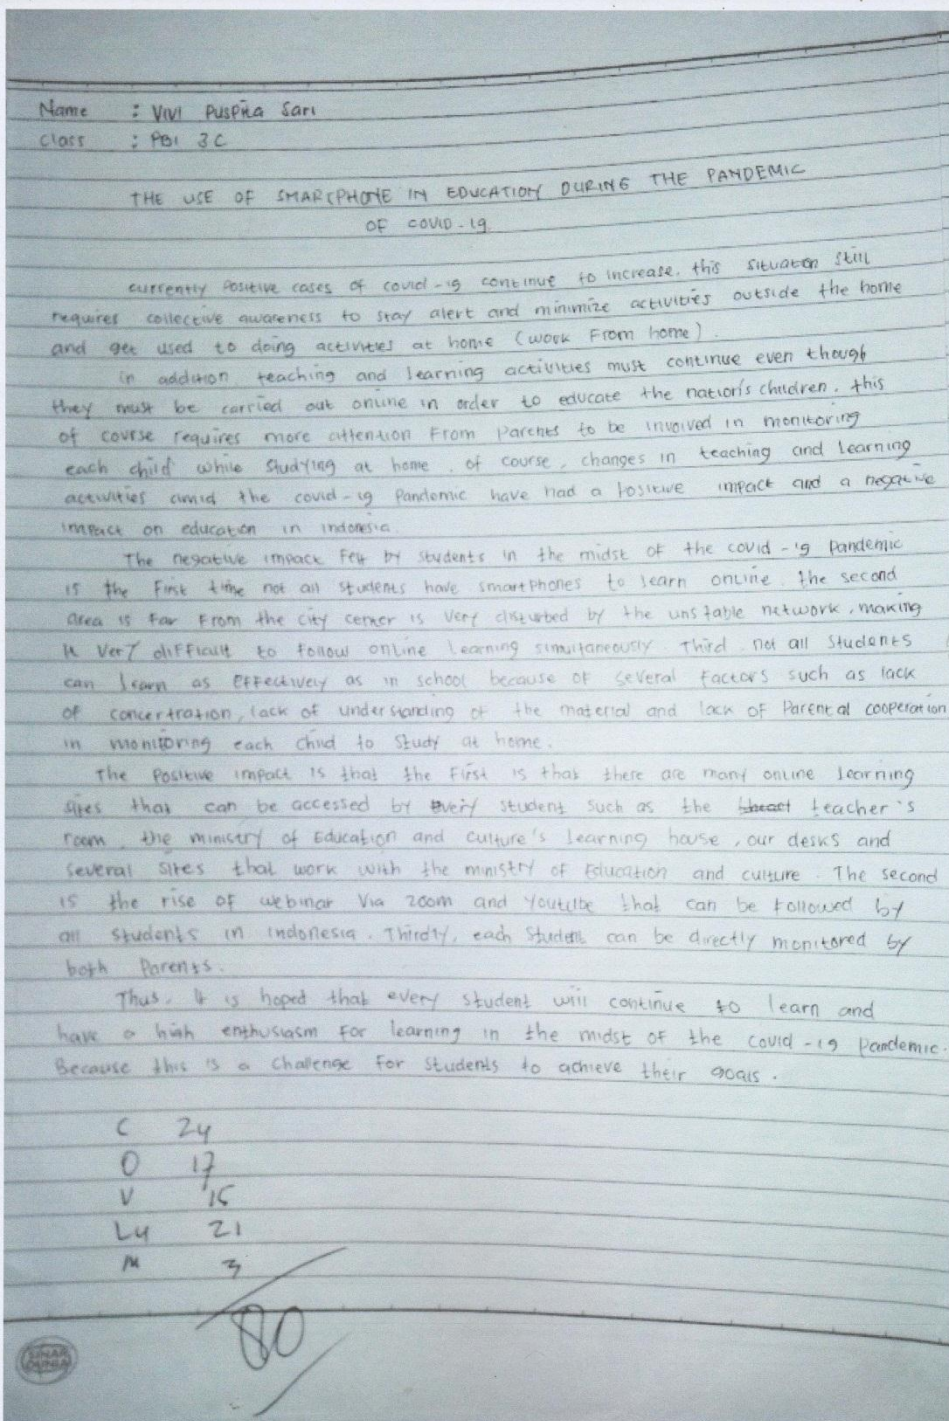 Name : Vivi Puspita Sari
Class : PBI 3C
THE USE OF SMARTPHONE IN EDUCATION DURING THE PANDEMIC
OF COVID-19
currently positive cases of covid-19 continue to increase. this situation still
requires collective awareness to stay alert and minimize activities outside the home
and get used to doing activities at home (work from home).
in addition, teaching and learning activities must continue even though
they must be carried out online in order to educate the nation's children. this
of course requires more attention from parents to be involved in monitoring
each child while studying at home. of course, changes in teaching and learning
activities amid the covid-19 pandemic have had a positive impact and a negative
impact on education in indonesia.
The negative impact felt by students in the midst of the covid-19 pandemic
is the first time not all students have smartphones to learn online. the second
area is far from the city center is very disturbed by the unstable network, making
it very difficult to follow online learning simultaneously. Third, not all students
can learn as effectively as in school because of several factors such as lack
of concertration, lack of understanding of the material and lack of parental cooperation
in monitoring each child to study at home.
The positive impact is that the first is that there are many online learning
sites that can be accessed by every student such as the teacher's
room, the ministry of Education and culture's learning house, our desks and
several sites that work with the ministry of Education and culture. The second
is the rise of webinar via zoom and youtube that can be followed by
all students in indonesia. Thirdly, each student can be directly monitored by
both parents.
Thus, it is hoped that every student will continue to learn and
have a high enthusiasm for learning in the midst of the covid-19 pandemic.
Because this is a challenge for students to achieve their goals.
C 24
O 17
V 15
Lu 21
M 3
80
SINAR
DUNIA